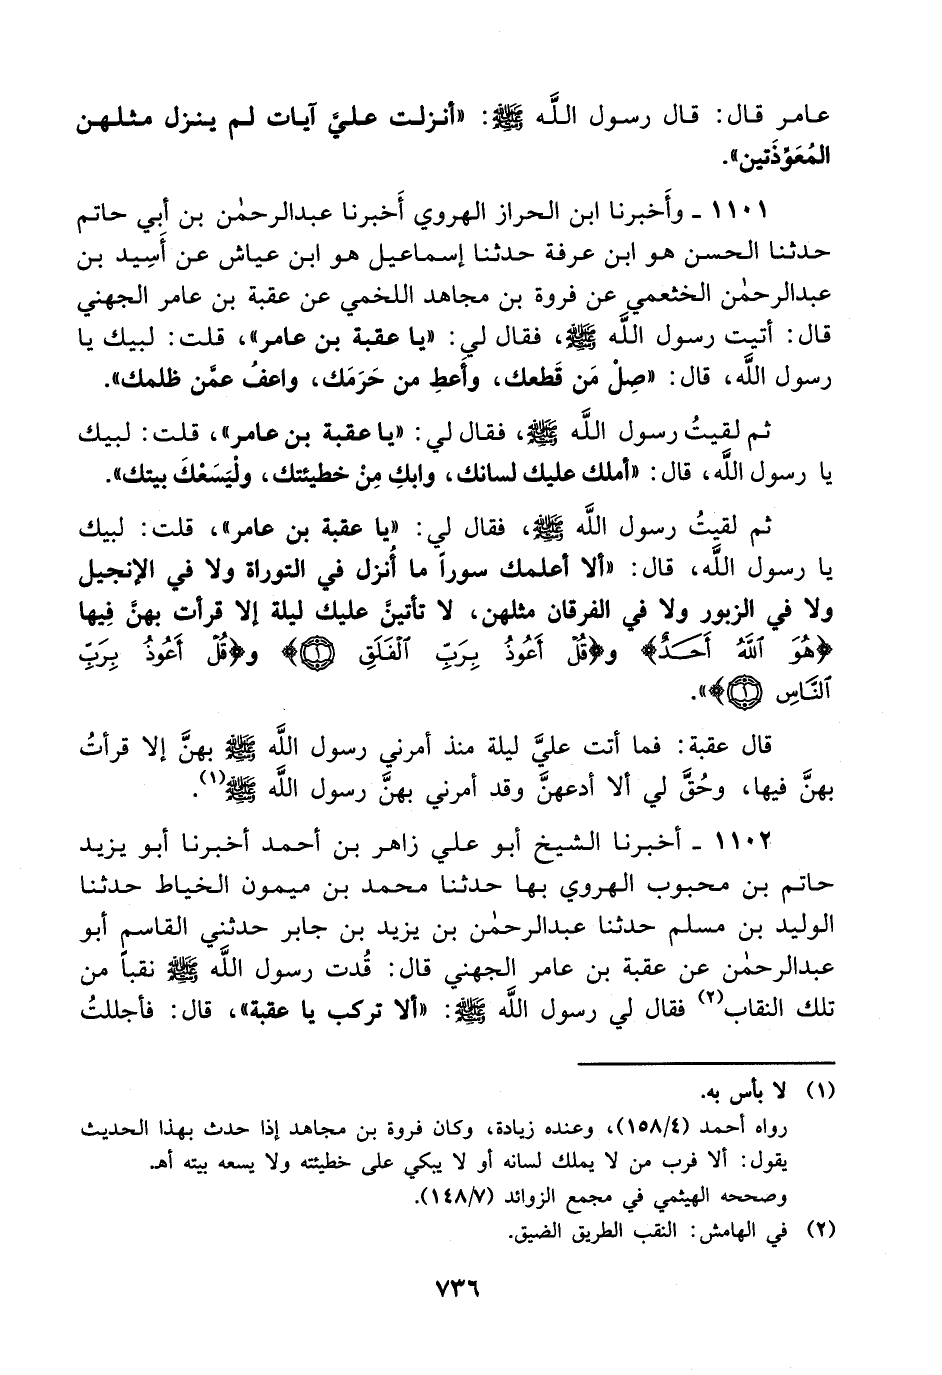 عامر قال: قال رسول اللَّه ﷺ: «أنزلت عليَّ آيات لم ينزل مثلهن
المُعَوِّذَتين».
١١٠١ ـ وأَخبرنا ابن الحراز الهروي أَخبرنا عبدالرحمٰن بن أبي حاتم
حدثنا الحسن هو ابن عرفة حدثنا إسماعيل هو ابن عياش عن أَسِيد بن
عبدالرحمٰن الخثعمي عن فروة بن مجاهد اللخمي عن عقبة بن عامر الجهني
قال: أتيت رسول اللَّه ﷺ، فقال لي: «يا عقبة بن عامر»، قلت: لبيك يا
رسول اللَّه، قال: «صِلْ مَن قَطعك، وأَعطِ من حَرَمَك، واعفُ عمَّن ظلمك».
ثم لقيتُ رسول اللَّه ﷺ، فقال لي: «يا عقبة بن عامر»، قلت: لبيك
يا رسول اللَّه، قال: «أملك عليك لسانك، وابكِ مِنْ خطيئتك، ولْيَسَعْكَ بيتك».
ثم لقيتُ رسول اللَّه ﷺ، فقال لي: «يا عقبة بن عامر»، قلت: لبيك
يا رسول اللَّه، قال: «ألا أعلمك سوراً ما أُنزل في التوراة ولا في الإنجيل
ولا في الزبور ولا في الفرقان مثلهن، لا تأتينَّ عليك ليلة إلا قرأت بهنَّ فِيها
﴿هُوَ ٱللَّهُ أَحَـدٌ﴾ و﴿قُلْ أَعُوذُ بِرَبِّ ٱلْفَلَقِ ۝١﴾ و﴿قُلْ أَعُوذُ بِرَبِّ
ٱلنَّاسِ ۝١﴾».
قال عقبة: فما أتت عليَّ ليلة منذ أمرني رسول اللَّه ﷺ بهنَّ إلا قرأتُ
بهنَّ فيها، وحُقَّ لي ألا أدعهنَّ وقد أمرني بهنَّ رسول اللَّه ﷺ(١).
١١٠٢ ـ أخبرنا الشيخ أبو علي زاهر بن أحمد أخبرنا أبو يزيد
حاتم بن محبوب الهروي بها حدثنا محمد بن ميمون الخياط حدثنا
الوليد بن مسلم حدثنا عبدالرحمٰن بن يزيد بن جابر حدثني القاسم أبو
عبدالرحمٰن عن عقبة بن عامر الجهني قال: قُدت رسول اللَّه ﷺ نقباً من
تلك النقاب(٢) فقال لي رسول اللَّه ﷺ: «ألا تركب يا عقبة»، قال: فأجللتُ
(١) لا بأس به.
رواه أحمد (١٥٨/٤)، وعنده زيادة، وكان فروة بن مجاهد إذا حدث بهذا الحديث
يقول: ألا فرب من لا يملك لسانه أو لا يبكي على خطيئته ولا يسعه بيته أهـ.
وصححه الهيثمي في مجمع الزوائد (١٤٨/٧).
(٢) في الهامش: النقب الطريق الضيق.
٧٣٦